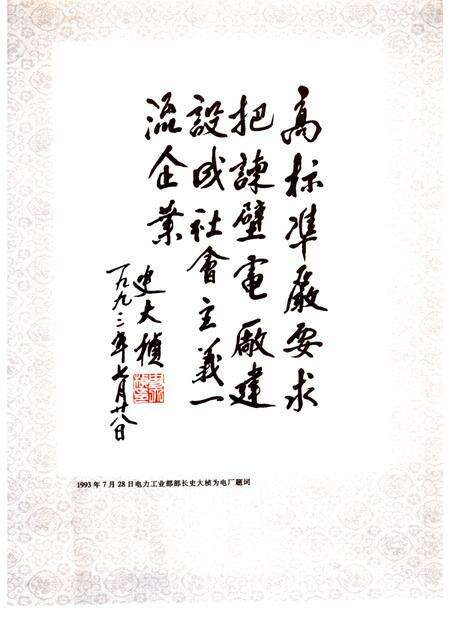 高标准嚴要求
把諫壁電廠建
設成社會主義一
流企業
史大楨
一九九三年七月廿八日
1993年7月28日电力工业部部长史大桢为电厂题词